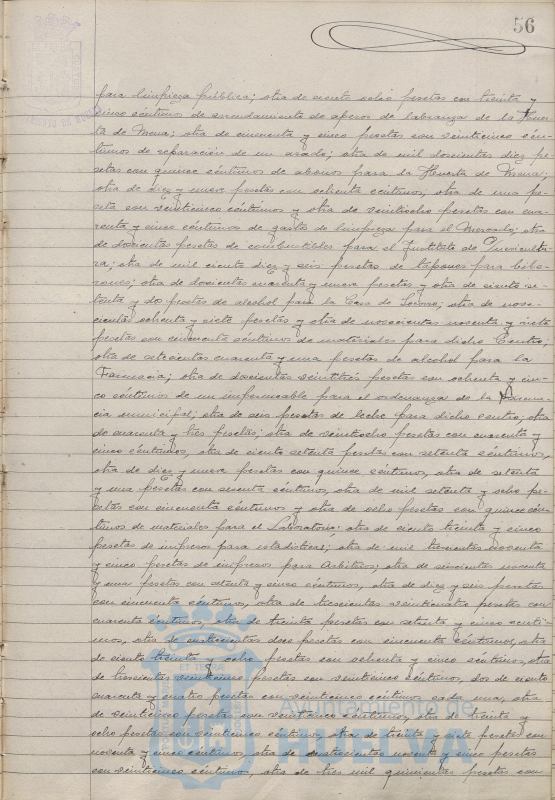 56
para limpieza pública; otra de ciento ocho pesetas con treinta y
cinco céntimos de arrendamiento de aperos de labranza de la Huer-
ta de Mena; otra de cincuenta y cinco pesetas con veinticinco cén-
timos de reparación de un arado; otra de mil doscientas diez pe-
setas con quince céntimos de abonos para la Huerta de Mena;
otra de diez y nueve pesetas con ochenta céntimos, otra de una pe-
seta con veinticinco céntimos y otra de veintiocho pesetas con cua-
renta y cinco céntimos de gastos de limpieza para el Mercado; otra
de doscientas pesetas de combustibles para el Instituto de Puericultu-
ra; otra de mil ciento diez y seis pesetas de tapones para bibe-
rones; otra de doscientas cuarenta y nueve pesetas y otra de ciento se-
tenta y dos pesetas de alcohol para la Casa de Socorro; otra de nove-
cientas ochenta y siete pesetas y otra de novecientas noventa y siete
pesetas con cincuenta céntimos de materiales para dicho Centro;
otra de setecientas cuarenta y una pesetas de alcohol para la
Farmacia; otra de doscientas veintitrés pesetas con ochenta y cin-
co céntimos de un impermeable para el ordenanza de la Farma-
cia municipal; otra de seis pesetas de leche para dicho centro; otra
de cuarenta y tres pesetas; otra de veintiocho pesetas con cuarenta y
cinco céntimos, otra de ciento setenta pesetas con setenta céntimos,
otra de diez y nueve pesetas con quince céntimos, otra de setenta
y una pesetas con sesenta céntimos, otra de mil setenta y ocho pe-
setas con cincuenta céntimos y otra de ocho pesetas con quince cén-
timos de materiales para el Laboratorio; otra de ciento treinta y cinco
pesetas de impresos para estadística; otra de mil trescientas noventa
y cinco pesetas de impresos para Arbitrios; otra de seiscientas noventa
y una pesetas con setenta y cinco céntimos, otra de diez y seis pesetas
con cincuenta céntimos, otra de trescientas veinticuatro pesetas con
cuarenta céntimos, otra de treinta pesetas con setenta y cinco cénti-
mos, otra de cuatrocientas doce pesetas con cincuenta céntimos, otra
de ciento treinta y ocho pesetas con ochenta y cinco céntimos, otra
de trescientas veinticinco pesetas con veinticinco céntimos, dos de ciento
cuarenta y cuatro pesetas con veinticinco céntimos cada una, otra
de veinticinco pesetas con veinticinco céntimos, otra de treinta y
ocho pesetas con veinticinco céntimos, otra de treinta y siete pesetas con
noventa y cinco céntimos, otra de cuatrocientas noventa y cinco pesetas
con veinticinco céntimos, otra de tres mil quinientas pesetas con
Ayuntamiento de
HUELVA